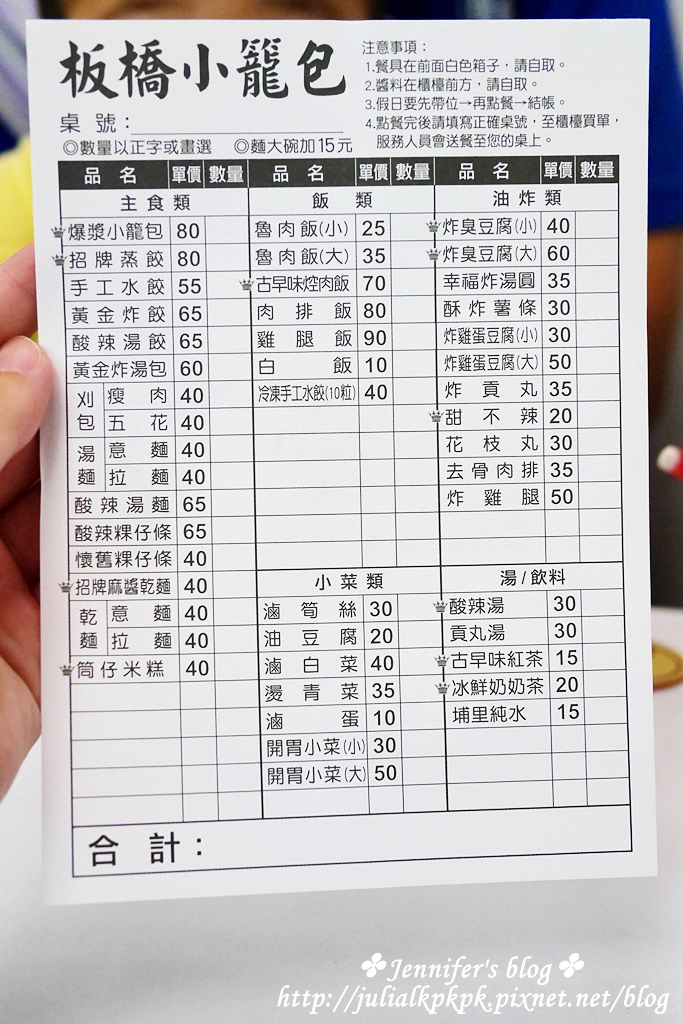 板橋小籠包
桌號：
◎數量以正字或畫選 ◎麵大碗加15元
注意事項：
1.餐具在前面白色箱子，請自取。
2.醬料在櫃檯前方，請自取。
3.假日要先帶位→再點餐→結帳。
4.點餐完後請填寫正確桌號，至櫃檯買單，
服務人員會送餐至您的桌上。
品名 單價 數量
主食類
爆漿小籠包 80
招牌蒸餃 80
手工水餃 55
黃金炸餃 65
酸辣湯餃 65
黃金炸湯包 60
刈包 瘦肉 40
五花 40
湯麵 意麵 40
拉麵 40
酸辣湯麵 65
酸辣粿仔條 65
懷舊粿仔條 40
招牌麻醬乾麵 40
乾麵 意麵 40
拉麵 40
筒仔米糕 40
品名 單價 數量
飯類
魯肉飯(小) 25
魯肉飯(大) 35
古早味焢肉飯 70
肉排飯 80
雞腿飯 90
白飯 10
冷凍手工水餃(10粒) 40
小菜類
滷筍絲 30
油豆腐 20
滷白菜 40
燙青菜 35
滷蛋 10
開胃小菜(小) 30
開胃小菜(大) 50
品名 單價 數量
油炸類
炸臭豆腐(小) 40
炸臭豆腐(大) 60
幸福炸湯圓 35
酥炸薯條 30
炸雞蛋豆腐(小) 30
炸雞蛋豆腐(大) 50
炸貢丸 35
甜不辣 20
花枝丸 30
去骨肉排 35
炸雞腿 50
湯/飲料
酸辣湯 30
貢丸湯 30
古早味紅茶 15
冰鮮奶奶茶 20
埔里純水 15
合計：
Jennifer's blog
http://julialkpkpk.pixnet.net/blog